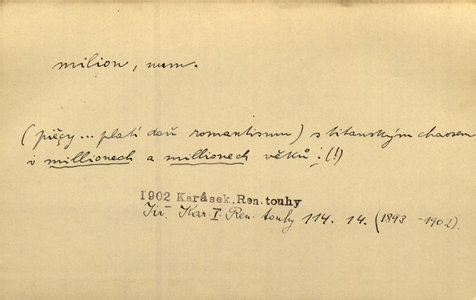 milion, num.
(piěçy... platí daň romantismu) s titanským chaosem
v millionech a millionech věků! (!)
1902 Karásek, Ren. touhy
Jiř. Kar. I. Ren. touhy 114. 14. (1893 - 1902).